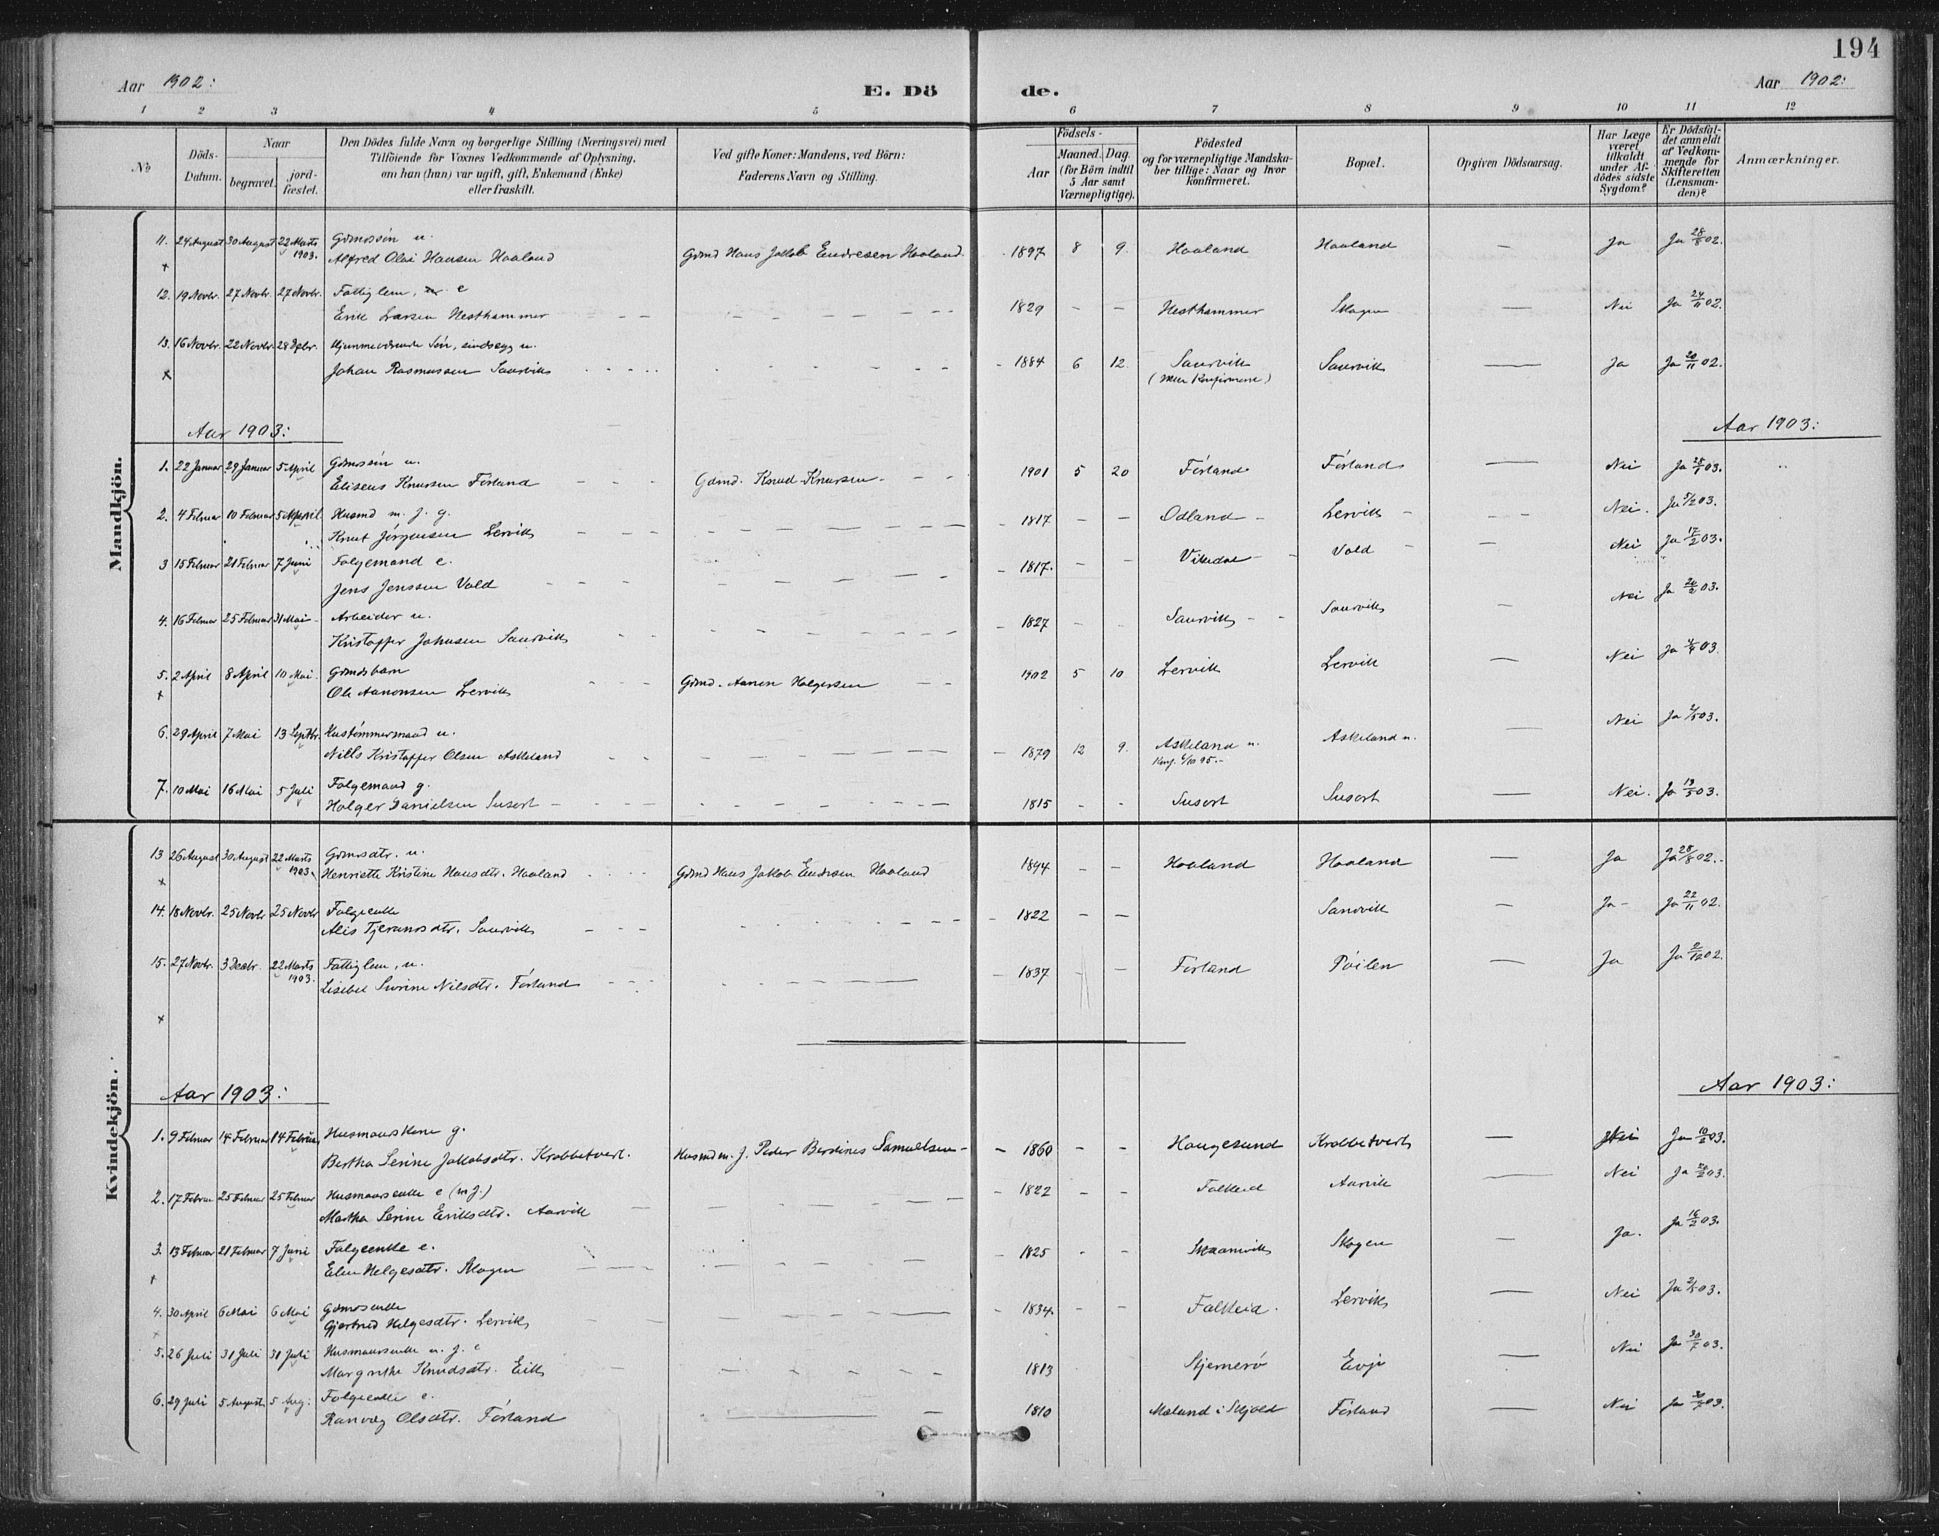 194
Aar 1902: E. Dö de. Aar 1902:
1 2 3 4 5 6 7 8 9 10 11 12
No
Döds-Datum.
Naar
begravet.
jord-fæstet.
Den Dödes fulde Navn og borgerlige Stilling (Næringsvei) med
Tilföiende for Voxnes Vedkommende af Oplysning,
om han (hun) var ugift, gift, Enkemand (Enke)
eller fraskilt.
Ved gifte Koner: Mandens, ved Börn:
Faderens Navn og Stilling.
Födsels-
Aar
Maaned. Dag.
(for Börn indtil
5 Aar samt
Værnepligtige).
Födested
og for værnepligtige Mandska-
ber tillige: Naar og hvor
konfirmeret.
Bopæl.
Opgiven Dödsaarsag.
Har Læge
været
tilkaldt
under Af-
dödes sidste
Sygdom?
Er Dödsfal-
det anmeldt
af Vedkom-
mende for
Skifteretten
(Lensman-
den)?
Anmærkninger.
Mandkjön.
11. 24 August 30 August 22 Marts 1903. Gdmssön u.
Alfred Olai Hansen Haaland Gdmd Hans Jakob Endresen Haaland 1897 8 9. Haaland Haaland — Ja Ja 28/8 02.
12. 19 Novbr. 27 Novbr. 27 Novbr. Fattiglem, e
Erik Larsen Hesthammer 1829 - - Hesthammer Skogen — Nei Ja 24/11 02.
13. 16 Novbr. 22 Novbr. 28 Hjemmeværende Sön, sindssyg u.
Johan Rasmussen Sandvik 1884 6 12. Sandvik Sandvik — Ja Ja 20/11 02.
Aar 1903: Aar 1903:
1. 22 Januar 29 Januar 5 April Gdmssön u.
Eliseus Knutsen Förland Gdmd. Knud Knutsen 1901 5 20 Förland Förland — Nei Ja 25/1 03.
2. 4 Februar 10 Februar 5 April Husmd m. j. g.
Knut Jörgensen Lervik 1817 - - Odland Lervik — Nei. Ja 5/2 03.
3 15 Februar 21 Februar 7 Juni Folgemand e.
Jens Jenssen Vold 1817. - - Vikedal Vold — Nei Ja 17/2 03.
4. 16 Februar 25 Februar 31 Mai Arbeider u.
Kristoffer Johnsen Sandvik 1827 - - Sandvik Sandvik — Nei Ja 03.
5. 2 April 8 April 10 Mai. Gdmdsbarn
Ole Aanonsen Lervik Gdmd. Aanen Holgersen 1902 5 10 Lervik Lervik — Nei Ja 4/4 03.
6. 29 April 7 Mai 13 Septbr. Hustömmermand u.
Nills Kristoffer Olsen Askeland 1879 12 9. Askeland u.
Konf. 6/10 95. Askeland u. — Nei Ja 2/5 03.
7. 10 Mai 16 Mai 5 Juli Folgemand g.
Holger Danielsen Susort 1815 - - Susort Susort — Nei. Ja 13/5 03.
Kvindekjön.
13 26 August 30 August 22 Marts 1903. Gdmsdtr. u.
Henriette Kristine Hansdtr. Haaland Gdmd Hans Jakob Endresen Haaland 1894 - - Haaland Haaland — Ja Ja 28/8 02.
14. 18 Novbr. 25 Novbr 25 Novbr Folgeenke
Alis Tjerandsdtr. Sandvik 1822 - - Sandvik — Ja Ja 22/11 02.
15. 27 Novbr. 3 Decbr. 22 Marts 1903. Fattiglem, u.
Lisebet Serine Nilsdtr. Förland 1837 - - Förland — Ja Ja 2/12 02.
Aar 1903: Aar 1903:
1. 9 Februar 14 Februar 14 Februar Husmandskone g.
Bertha Serine Jakobsdtr. Krabbetveit. Husmd m. j. Peder Berdines Samuelsen 1860 - - Haugesund Krabbetveit — Nei Ja 10/2 03.
2. 17 Februar 25 Februar 25 Februar Husmandsenke e (m j.)
Martha Serine Eriksdtr. Aarvik 1822 - - Falkeid Aarvik — Nei Ja 03.
3. 13 Februar 21 Februar 7 Juni Folgeenke e.
Elen Helgesdtr. Skogen 1825 - - Skaanvik Skogen — Ja. Ja 16/2 03.
4. 30 April 6 Mai 6 Mai Gdmdsenke
Gjertrud Helgesdtr. Lervik 1834. - - Falkeid. Lervik — Nei Ja 2/5 03.
5. 26 Juli 31 Juli 31 Juli Husmandsenke
Margrethe Knudsdtr. Eik 1813 Stjernerö Evje — Nei Ja 30/7 03.
6. 29 Juli 5 August 5 Aug: Folgeenke e.
Ranveig Olsdtr. Förland 1810 Mæland i Skjold Förland — Nei Ja 03.